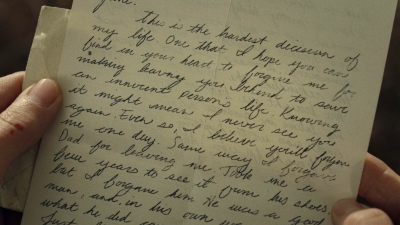 fine.
This is the hardest decision of
my life. One that I hope you can
find in your heart to forgive me for
making leaving you behind to save
an innocent person's life. Knowing
it might mean I never see you
again. Even so, I believe you'll forgive
me one day. Same way I forgave
Dad for leaving me. Took me a
few years to see it from his shoes,
but I forgave him. He was a good
man and, in his own
what he did